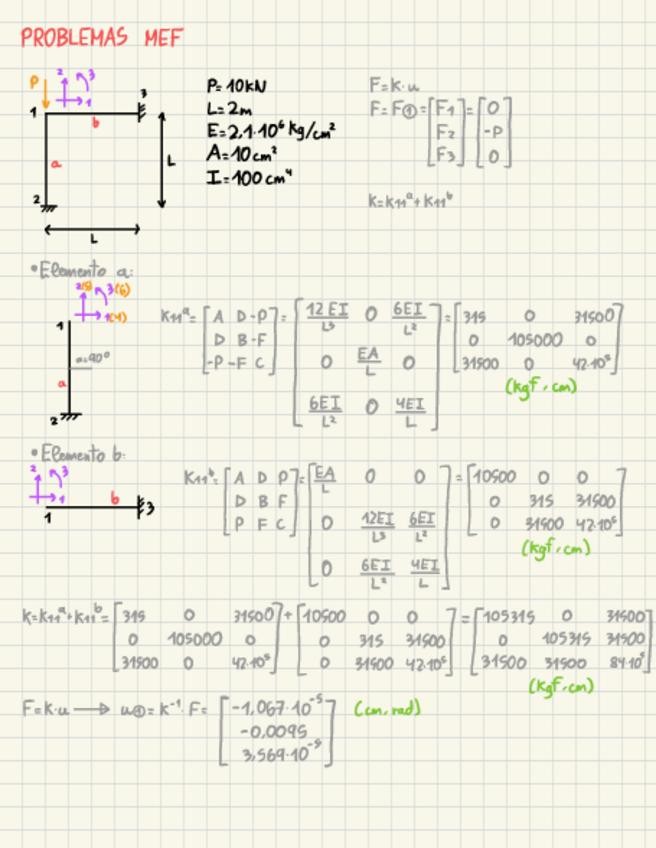 PROBLEMAS MEF
P
2
3
1
1
b
3
a
2
L
L
P=10kN
L=2m
E=2,1·10⁶ kg/cm²
A=10cm²
I=100cm⁴
F=K·u
F=F①=[F1 F2 F3]=[0 -P 0]
K=K11ᵃ+K11ᵇ
•Elemento a:
2(5) 3(6)
1(4)
1
α=90º
a
2
K11ᵃ=[A D -P
D B -F
-P -F C]=[12EI/L³ 0 6EI/L²
0 EA/L 0
6EI/L² 0 4EI/L]=[315 0 31500
0 105000 0
31500 0 42·10⁵]
(kgf,cm)
•Elemento b:
2
3
1
b
1
3
K11ᵇ=[A D P
D B F
P F C]=[EA/L 0 0
0 12EI/L³ 6EI/L²
0 6EI/L² 4EI/L]=[10500 0 0
0 315 31500
0 31500 42·10⁵]
(kgf,cm)
K=K11ᵃ+K11ᵇ=[315 0 31500
0 105000 0
31500 0 42·10⁵]+[10500 0 0
0 315 31500
0 31500 42·10⁵]=[105315 0 31500
0 105315 31500
31500 31500 84·10⁵]
(kgf,cm)
F=K·u → u①=K⁻¹·F=[-1,067·10⁻⁵
-0,0095
3,569·10⁻⁵]
(cm,rad)